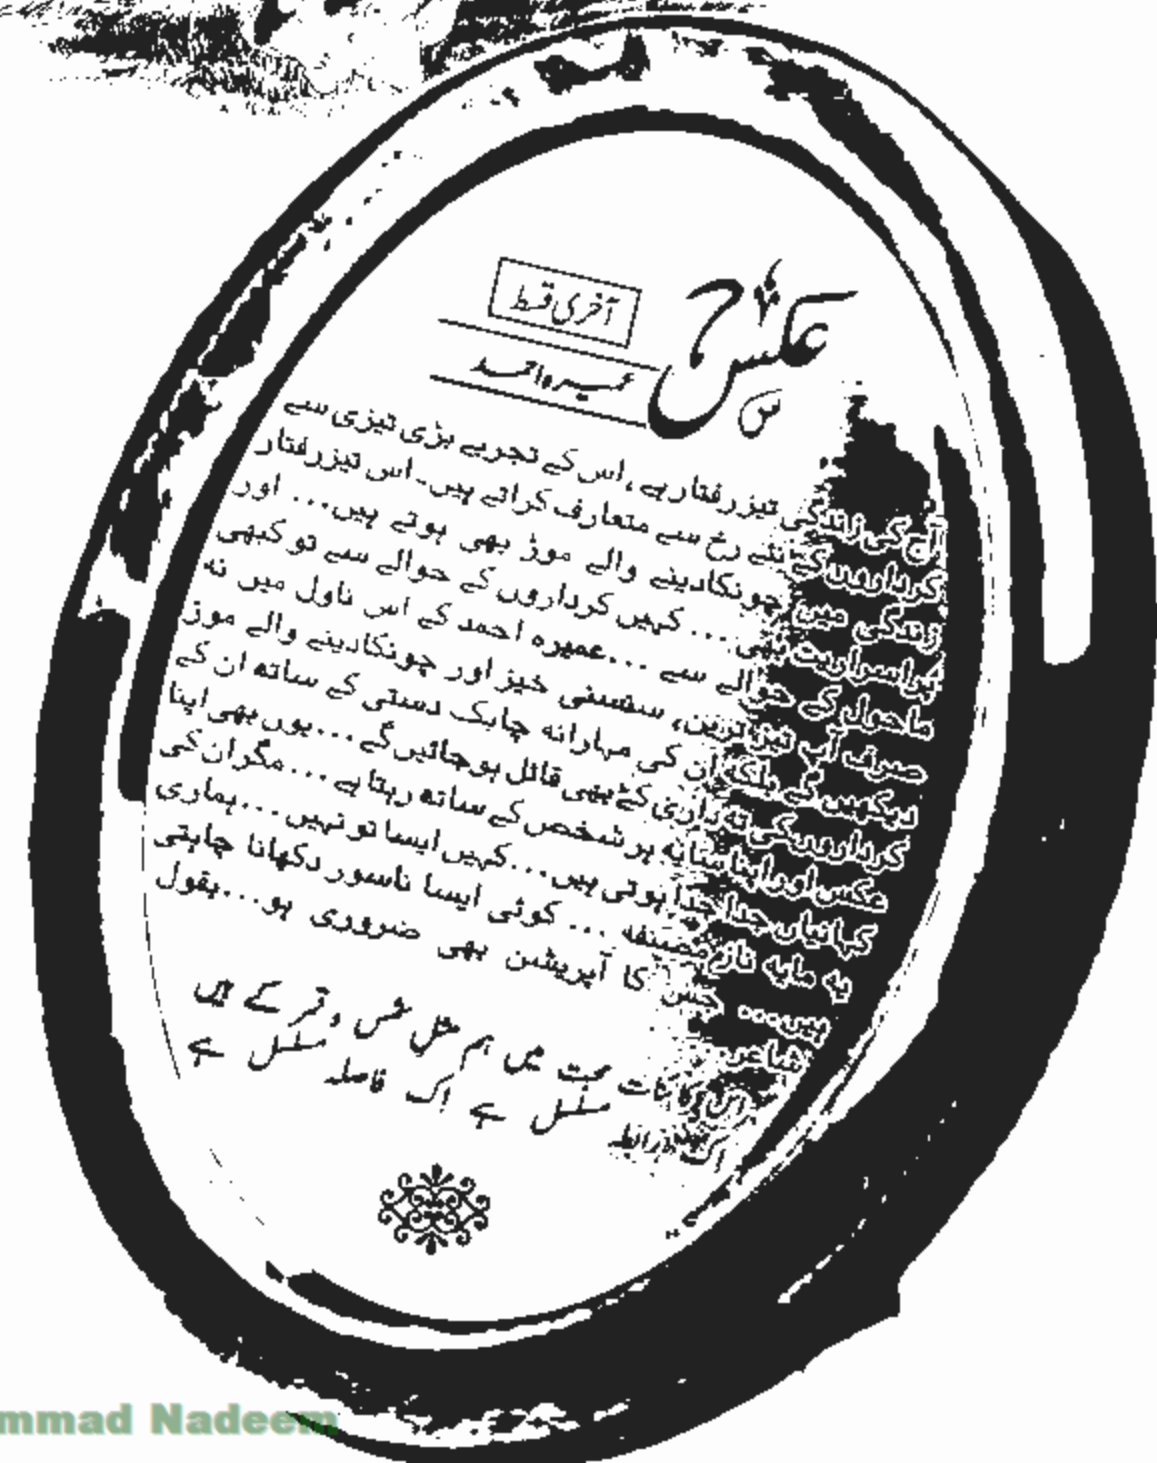 عکس
آخری قسط
عمیرہ احمد
آج کی زندگی تیزرفتار ہے ، اس کے تجربے بڑی تیزی سے
کرداروں کے نئے رخ سے متعارف کراتے ہیں۔ اس تیزرفتار
زندگی میں چونکادینے والے موڑ بھی ہوتے ہیں... اور
پراسراریت بھی... کہیں کرداروں کے حوالے سے تو کبھی
ماحول کے حوالے سے ...عمیرہ احمد کے اس ناول میں نہ
صرف آپ تیزترین، سنسنی خیز اور چونکادینے والے موڑ
دیکھیں گے بلکہ ان کی مہارانہ چابک دستی کے ساتھ ان کے
کرداروں کی تہ داری کے بھی قائل ہوجائیں گے...یوں بھی اپنا
عکس اور اپنا سایہ ہر شخص کے ساتھ رہتا ہے... مگر ان کی
کہانیاں جدا جدا ہوتی ہیں...کہیں ایسا تو نہیں...ہماری
یہ مایہ ناز مصنفہ ... کوئی ایسا ناسور دکھانا چاہتی
ہیں... جس کا آپریشن بھی ضروری ہو...بقول
شاعر.
اس کائنات محبت میں ہم مثل شمس و قمر کے ہیں
اک رابطہ مسلسل ہے اک فاصلہ مسلسل ہے
mmad Nadeem